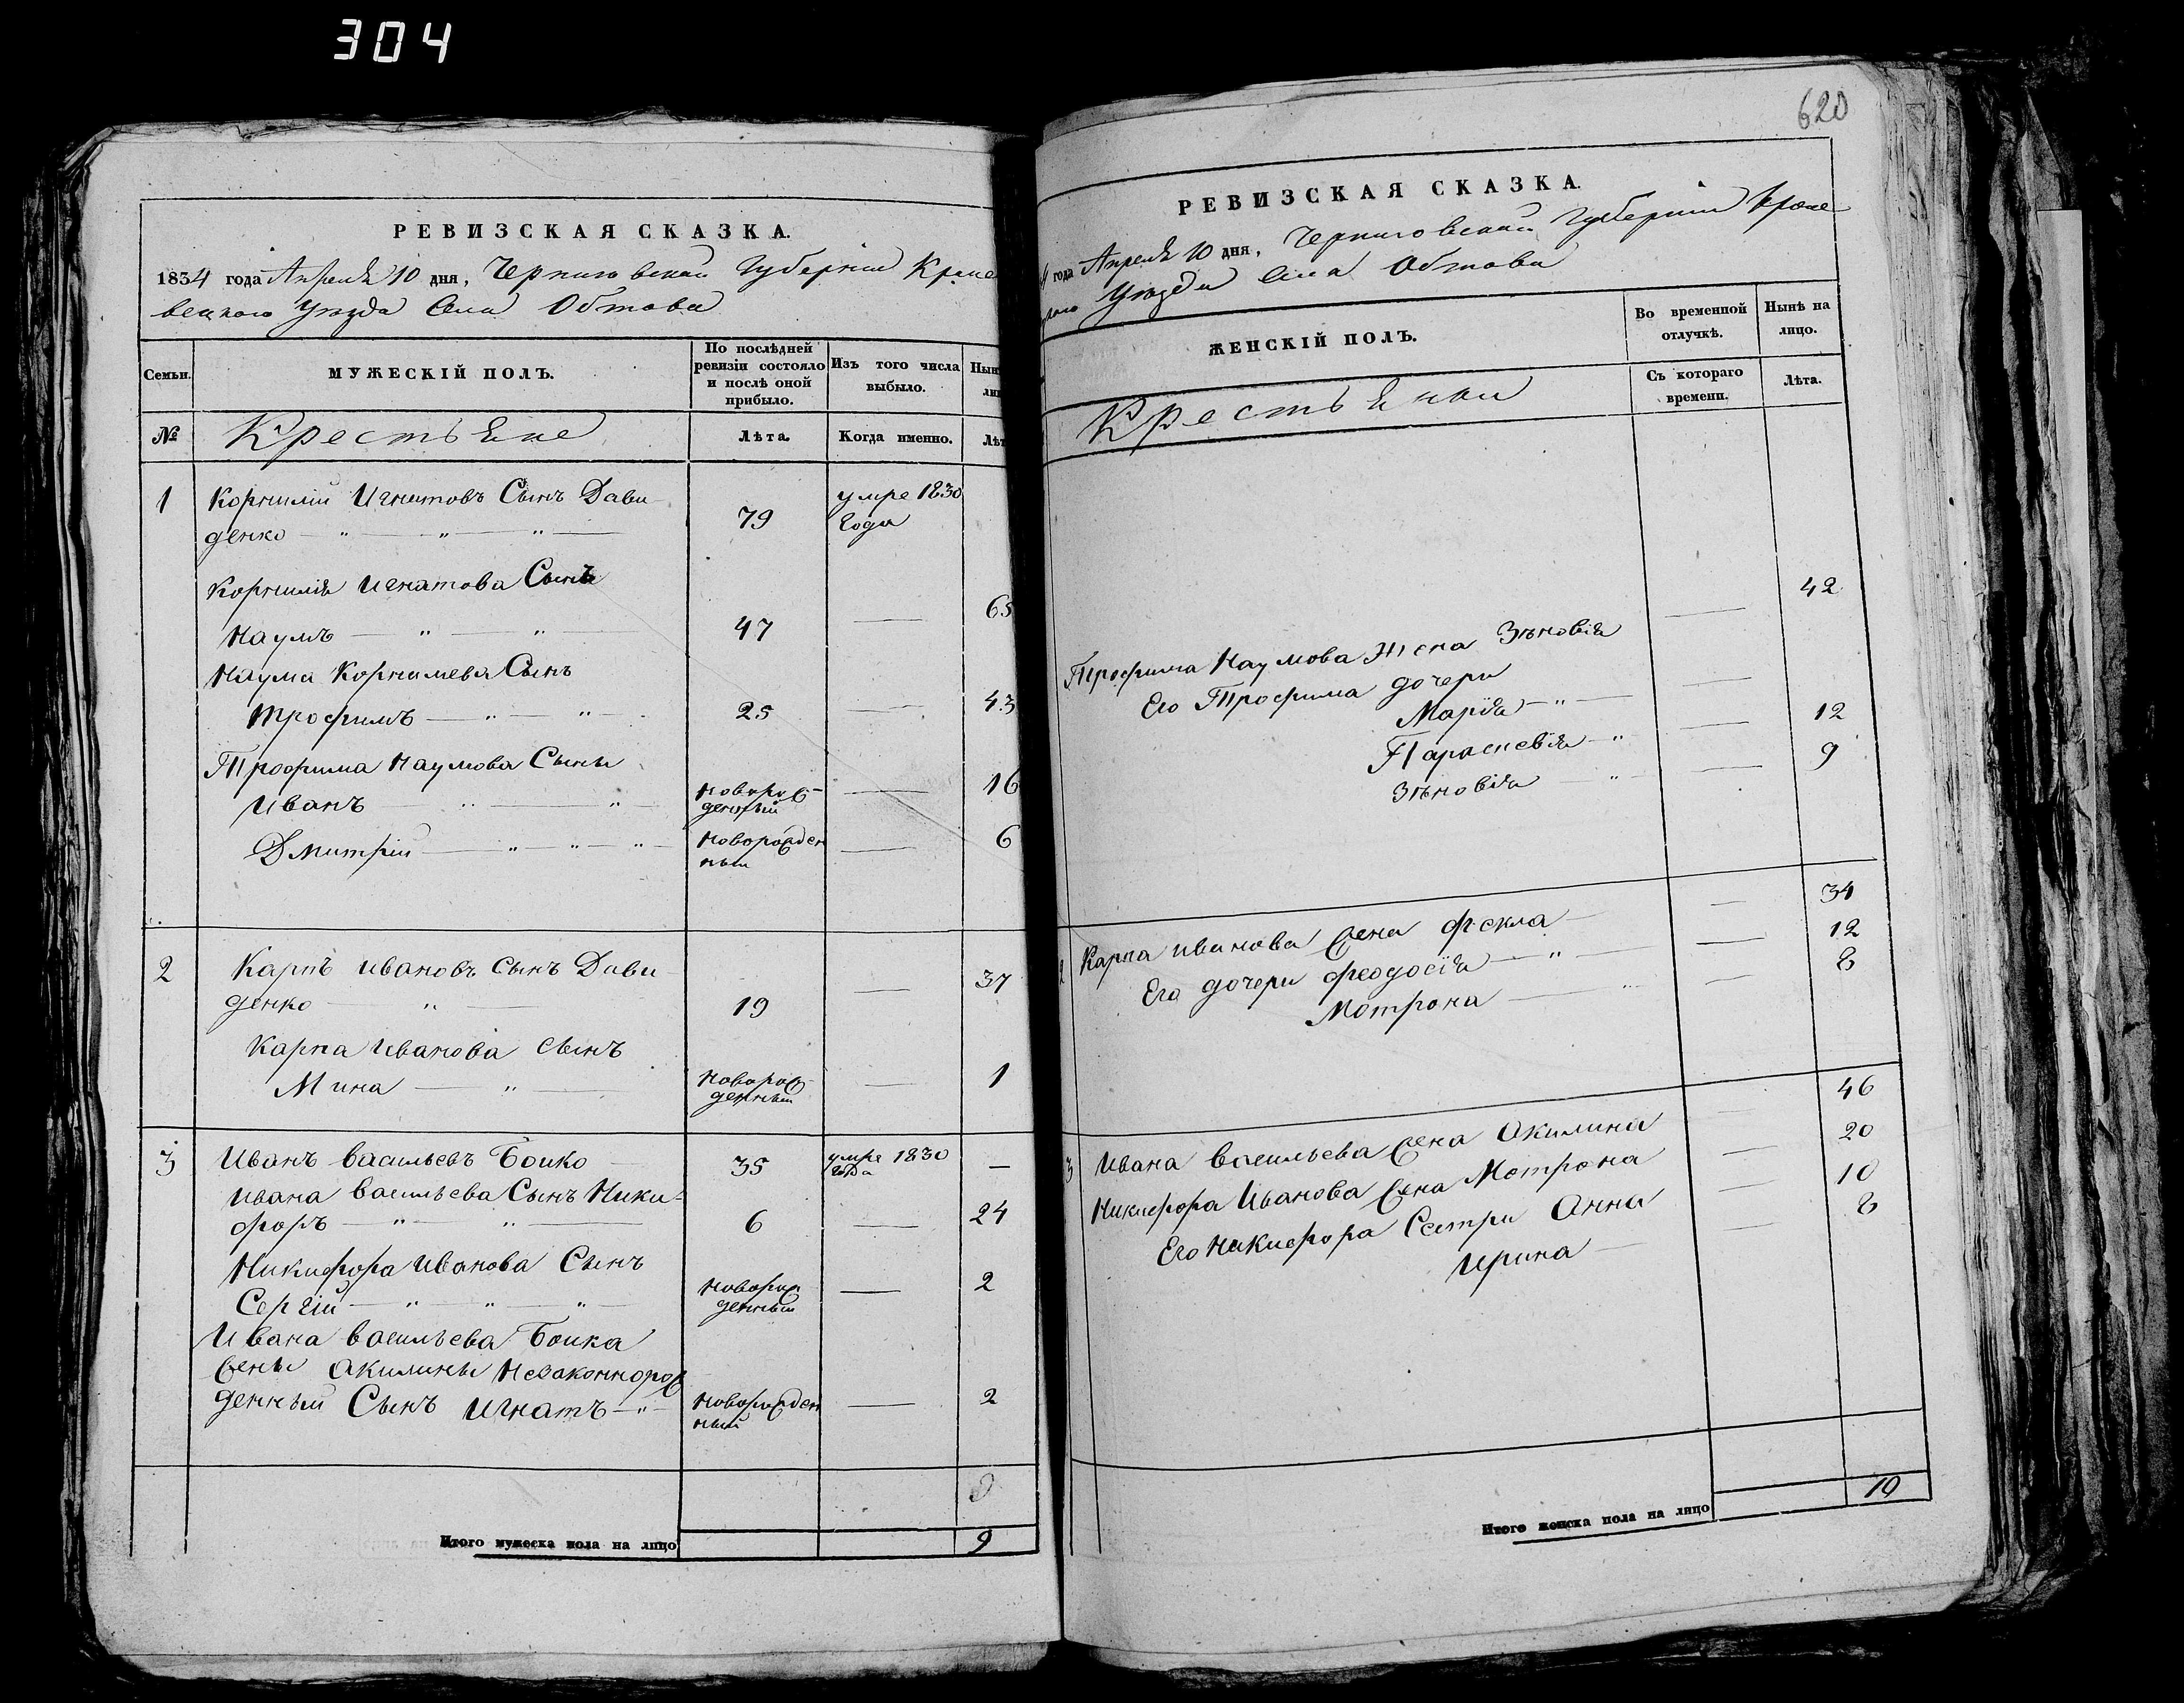 304
РЕВИЗСКАЯ СКАЗКА.
1834 года Апреля 10 дня, Черниговской Губернии Кроле
вецкого Уезда Села Обтова
Семьи.
МУЖЕСКІЙ ПОЛЪ.
По послѣдней
ревизіи состояло
и послѣ оной
прибыло.
Изъ того числа
выбыло.
№
Крестьяне
Лѣта.
Когда именно.
1 Корнилій Игнатовъ Сынъ Дави
денко 79 умре 1830
года
Корнилія Игнатова Сынъ
Наумъ 47 65
Наума Корнилева Сынъ
Трофимъ 25 43
Трофима Наумова Сыны
Иванъ новорож
денный 16
Дмитрій новорожден
ный 6
2 Карпъ Ивановъ Сынъ Дави
денко 19 37
Карпа Иванова Сынъ
Мина новорож
денный 1
3 Иванъ Васильевъ Бойко 35 умре 1830
года —
Ивана Васильева Сынъ Ники-
форъ 6 24
Никифора Иванова Сынъ
Сергій новорож
денный 2
Ивана Васильева Бойка
жены Акилины Незаконнорож
денный Сынъ Игнатъ новорожден
ный 2
9
Итого мужеска пола на лицо 9
620
РЕВИЗСКАЯ СКАЗКА.
года Апреля 10 дня, Черниговской Губернии Кроле
Уезда Села Обтова
ЖЕНСКІЙ ПОЛЪ.
Во временной
отлучкѣ.
Нынѣ на
лицо.
Съ котораго
времени.
Лѣта.
Крестьянки
Трофима Наумова Жена Зѣновія 42
Его Трофима дочери
Марія 12
Параскевія 9
Зѣновія
2 Карпа Иванова жена Фекла 34
Его дочери Феодосія 12
Мотрона 8
3 Ивана Васильева жена Акилина 46
Никифора Иванова жена Мотрона 20
Его Никифора Сестри Анна 10
Ирина 8
Итого женска пола на лицо 10